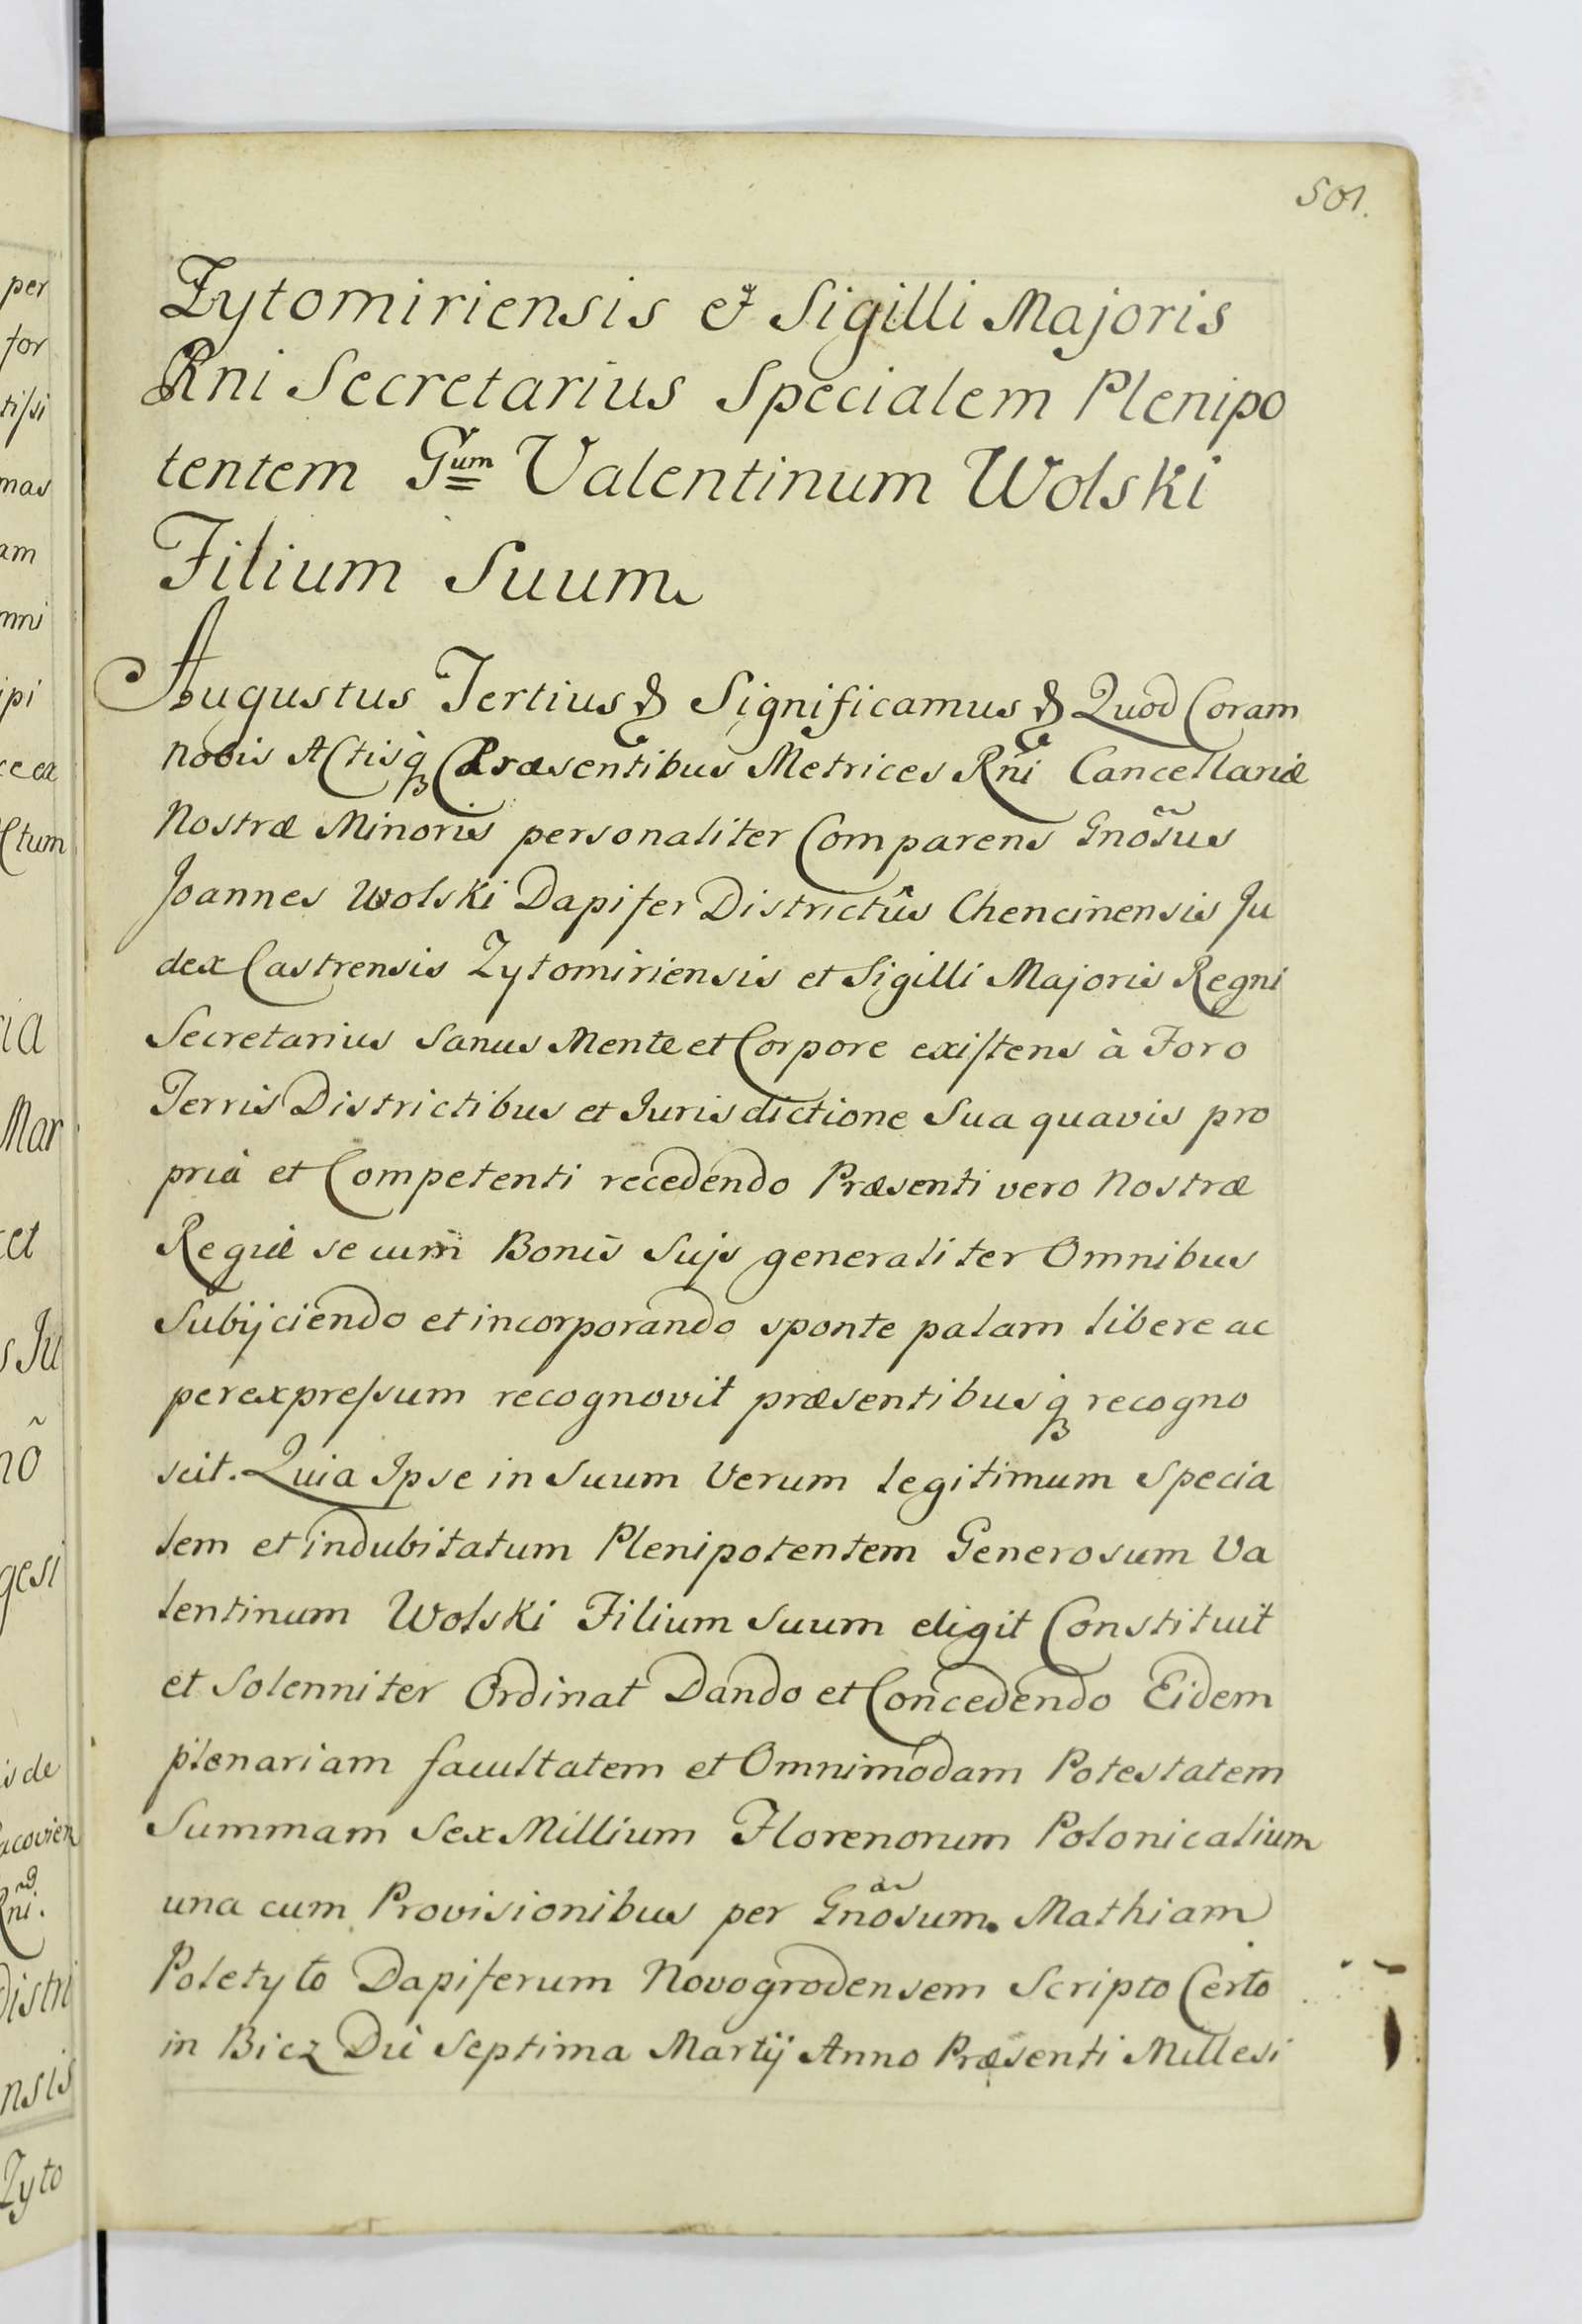 501.
Zytomiriensis et Sigilli Majoris
Rni Secretarius Specialem Plenipo
tentem Gum Valentinum Wolski
Filium Suum
Augustus Tertius & Significamus & Quod Coram
nobis Actisq Præsentibus Metrices Rni Cancellariæ
Nostræ Minoris personaliter Comparens Gnõsus
Joannes Wolski Dapifer Districtûs Chencinensis Ju
dex Castrensis Zytomiriensis et Sigilli Majoris Regni
Secretarius Sanus Mente et Corpore existens à Foro
Terris Districtibus et Jurisdictione Sua quavis pro
prià et Competenti recedendo Præsenti vero Nostræ
Regiæ se cum Bonis Sujs generaliter Omnibus
Subijciendo et incorporando sponte palam libere ac
per expressum recognovit præsentibusq recogno
scit. Quia Ipse in Suum Verum legitimum Specia
lem et indubitatum Plenipotentem Generosum Va
lentinum Wolski Filium Suum eligit Constituit
et Solenniter Ordinat Dando et Concedendo Eidem
plenariam facultatem et Omnimodam Potestatem
Summam Sex Millium Florenorum Polonicalium
una cum Provisionibus per Gnõsum Mathiam
Poletyło Dapiferum Novogrodensem Scripto Certo
in Biez Die Septima Martij Anno Præsenti Millesi
per
for
tissi
mas
am
mni
ipi
ce ea
ctum
ia
Mar
et
s Ju
nõ
gesi
is de
acovien
Rni.
Distri
nsis
Zyto